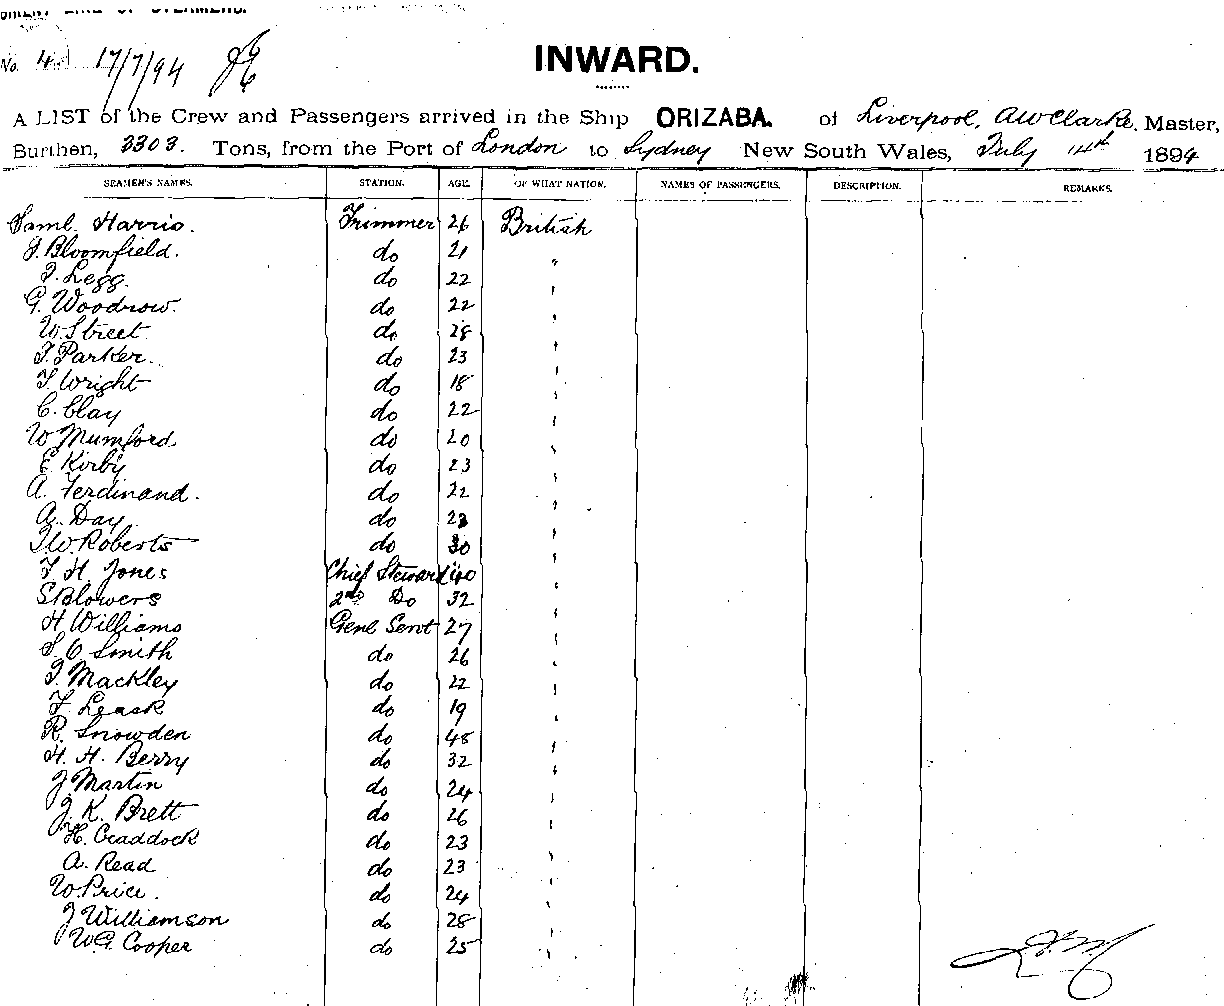 ORIENT LINE OF STEAMERS.
No. 4 17/7/94
INWARD.
A LIST of the Crew and Passengers arrived in the Ship ORIZABA. of Liverpool, A W Clarke, Master,
Burthen, 3303. Tons, from the Port of London to Sydney New South Wales, July 14th 1894
SEAMEN'S NAMES. STATION. AGE. OF WHAT NATION. NAMES OF PASSENGERS. DESCRIPTION. REMARKS.
Saml. Harris. Trimmer 26 British
J. Bloomfield. do 21 "
Legg. do 22 "
G. Woodrow. do 22 "
W. Street do 28 "
Parker. do 23 "
Wright do 18 "
C. Clay do 22 "
W Mumford do 20 "
E. Kirby do 23 "
A. Ferdinand. do 22 "
A. Day. do "
W. Roberts do 30 "
H. Jones Chief Steward 40 "
S Blowers 2nd Do 32 "
H Williams Genl Servt 27 "
Smith do 26 "
Mackley do 22 "
F. Leask do 19 "
R. Snowden do 48 "
H. H. Berry do 32 "
J Martin do 24 "
J. K. Brett do 26 "
H. Craddock do 23 "
A. Read do 23 "
W. Price. do 24 "
J Williamson do 28 "
W. G. Cooper do 25 "